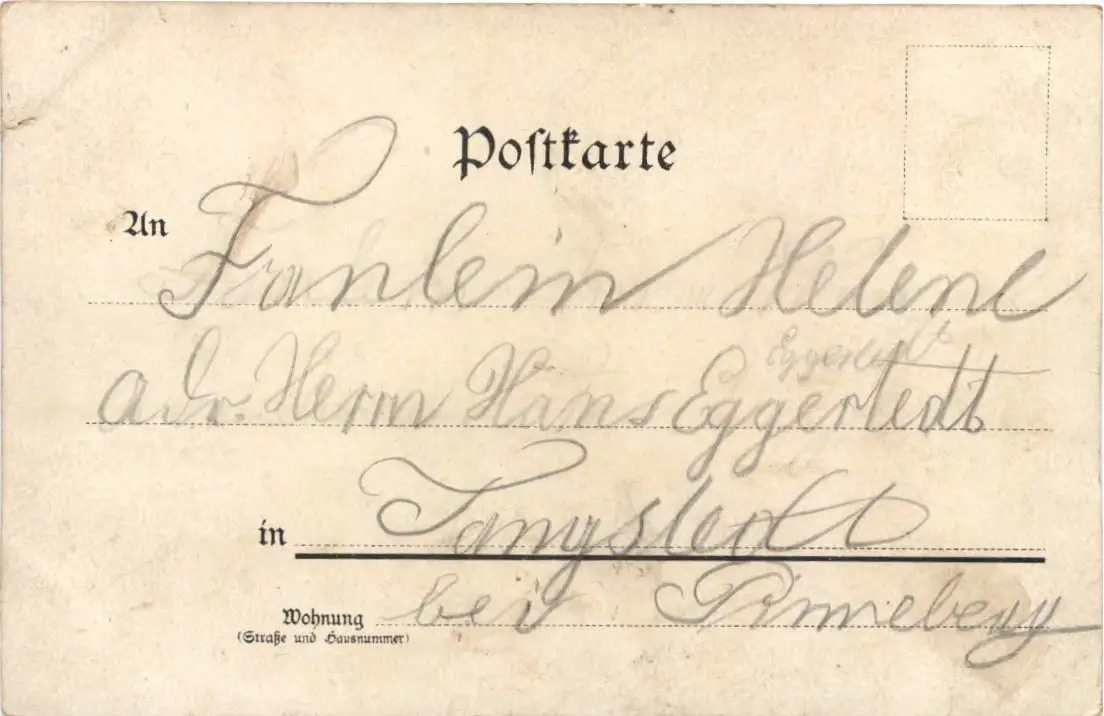 Postkarte
An Fräulein Helene
Eggerstedt
adr. Herrn Hans Eggerstedt
in Tangstedt
Wohnung bei Pinneberg
(Straße und Hausnummer)